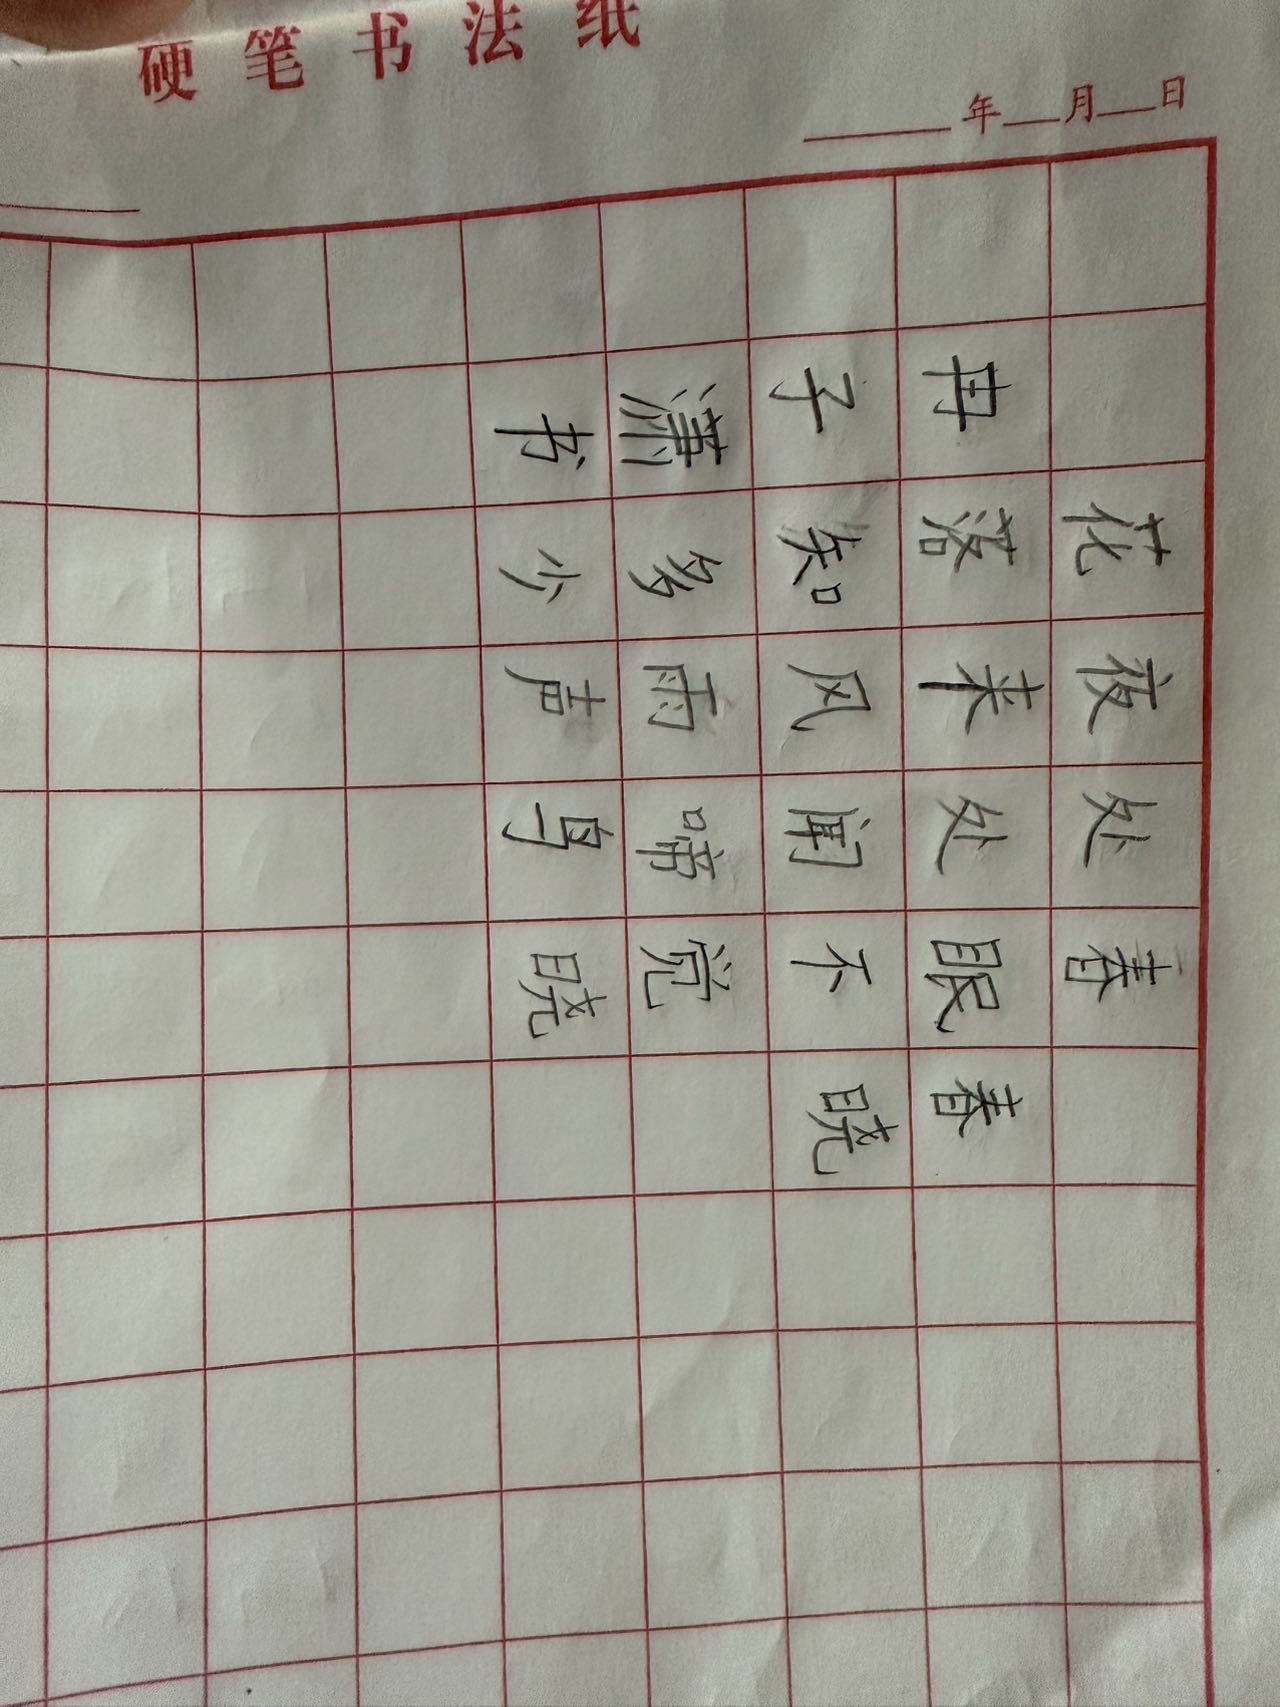 硬笔书法纸
年 月 日
春晓
春眠不觉晓
处处闻啼鸟
夜来风雨声
花落知多少
冉子潇书